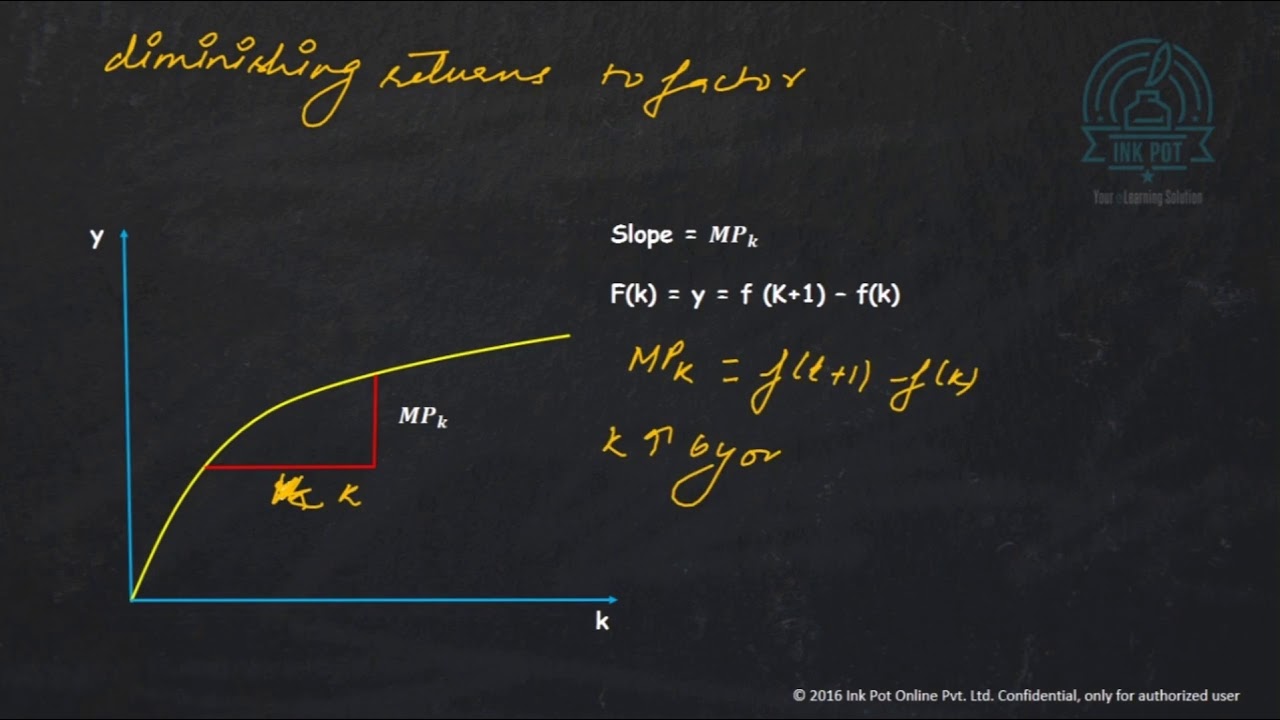 diminishing returns to factor
INK POT
Your eLearning Solution
y
Slope = MPk
F(k) = y = f (K+1) – f(k)
MPK = f(t+1) – f(k)
MPk
K ↑ by on
K
k
© 2016 Ink Pot Online Pvt. Ltd. Confidential, only for authorized user